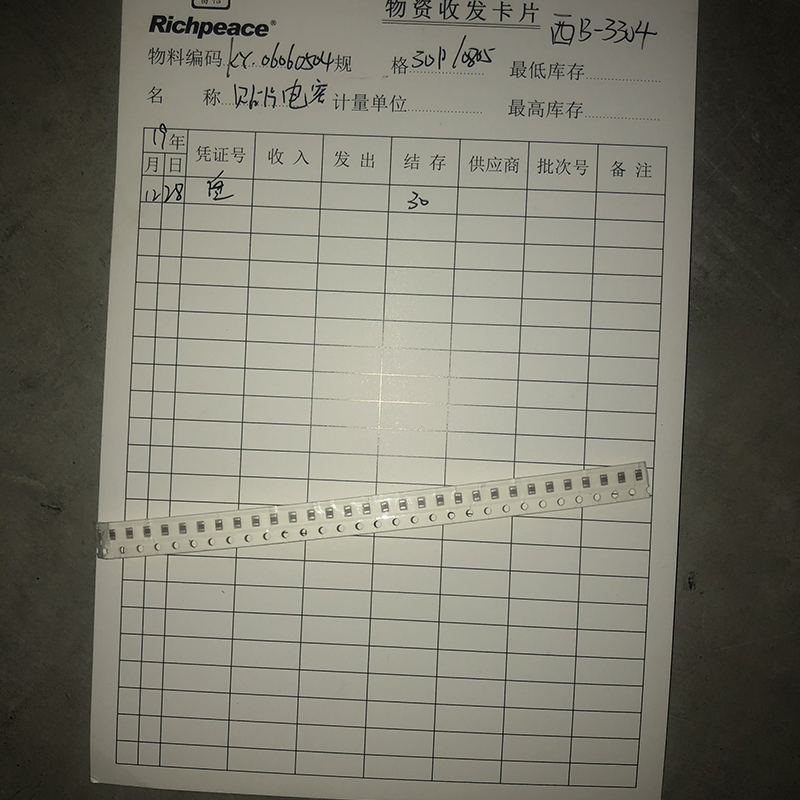 物资收发卡片 西B-3304
Richpeace®
物料编码 KY.06060504 规 格 30P/0805 最低库存
名 称 贴片电容 计量单位 最高库存
19年 凭证号 收入 发出 结存 供应商 批次号 备注
月 日
12 28 30